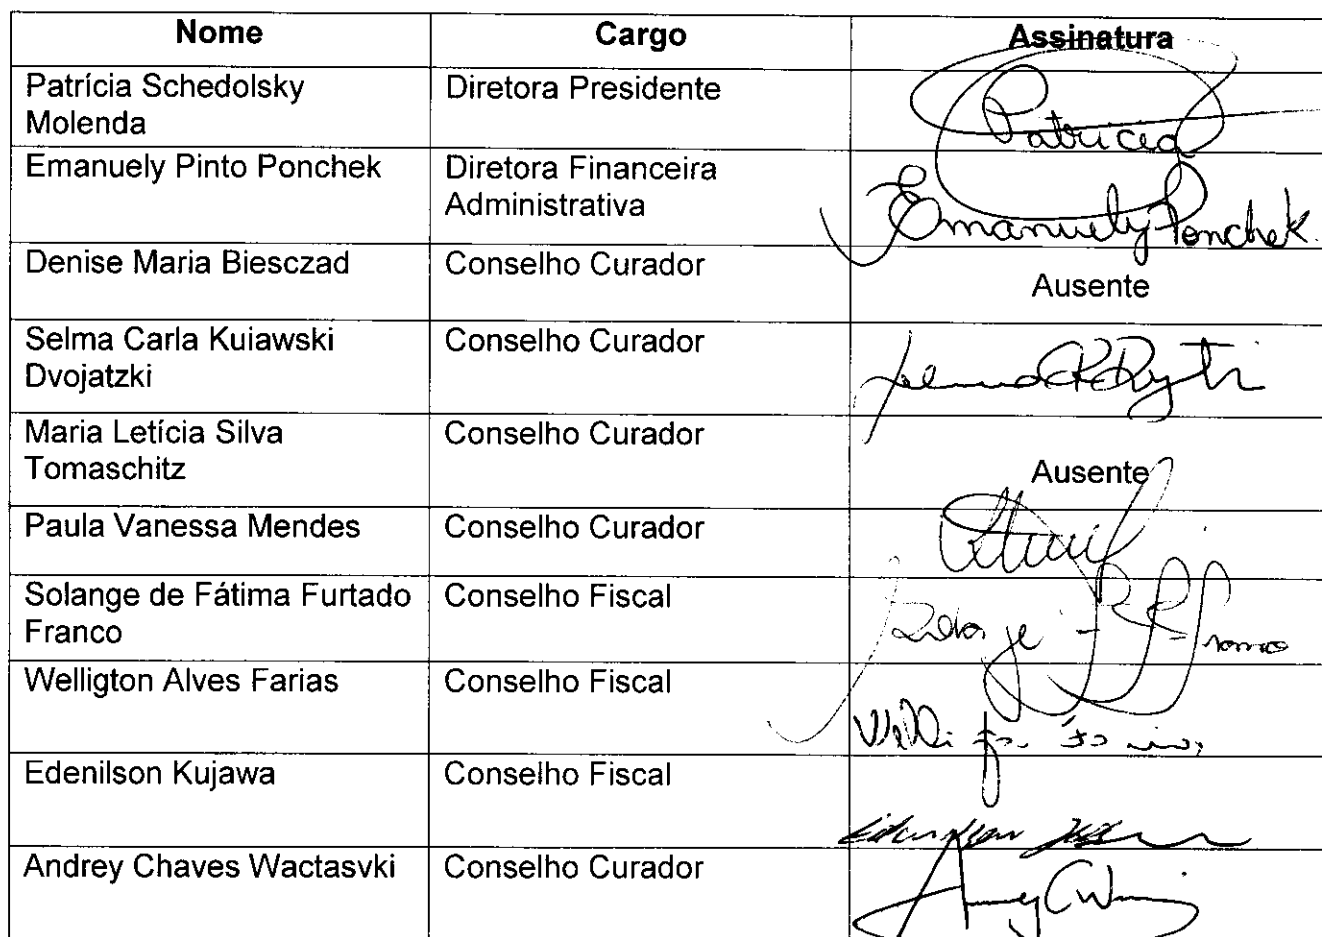 Nome Cargo Assinatura
Patrícia Schedolsky Diretora Presidente
Molenda Patricia
Emanuely Pinto Ponchek Diretora Financeira
Administrativa Emanuely Ponchek.
Denise Maria Biesczad Conselho Curador
Ausente
Selma Carla Kuiawski Conselho Curador
Dvojatzki
Maria Letícia Silva Conselho Curador
Tomaschitz Ausente
Paula Vanessa Mendes Conselho Curador
Solange de Fátima Furtado Conselho Fiscal
Franco
Welligton Alves Farias Conselho Fiscal
Edenilson Kujawa Conselho Fiscal
Andrey Chaves Wactasvki Conselho Curador